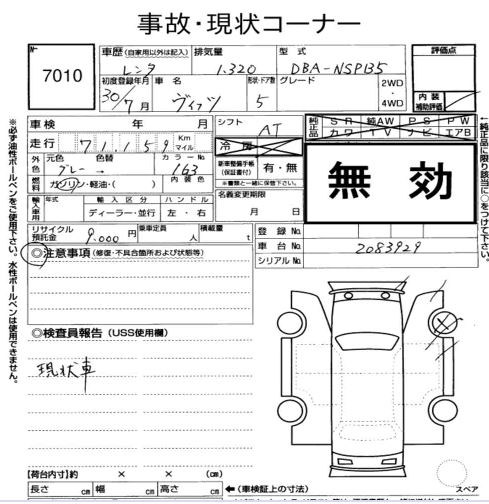 事故・現状コーナー
No.
7010
車歴(自家用以外は記入)
レンタ
排気量
1.320
型式
DBA-NSP135
評価点
初度登録年月
30/7月
車名
ヴィッツ
形状・ドア数
5
グレード
2WD
・
4WD
内装
補助評価
車検 年 月
シフト
AT
純正品
SR 純AW PS PW
カワ TV ナビ エアB
走行
71,159
Km
マイル
冷房
外色
元色 色替
グレー →
カラーNo.
163
内装色
新車整備手帳
(保証書付)
有・無
※書類と一緒に保管下さい。
燃料
ガソリン・軽油・( )
無効
輸入車用
年式
輸入区分
ディーラー・並行
ハンドル
左・右
名義変更期限
月 日
リサイクル
預託金
9,000 円
乗車定員
人
積載量
t
登録No.
車台No.
2083929
シリアルNo.
◎注意事項(修復・不具合箇所および状態等)
◎検査員報告(USS使用欄)
現状車
スペア
【荷台内寸】約 × × (cm)
長さ cm 幅 cm 高さ cm
←(車検証上の寸法)
※必ず油性ボールペンをご使用下さい。水性ボールペンは使用できません。
←純正品に限り該当に○をつけて下さい。